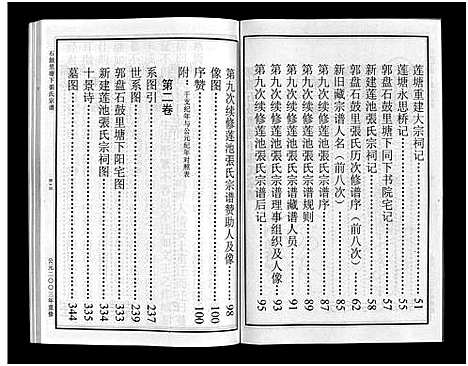 莲塘重建大宗祠记……51
莲塘永思桥记……52
郭盘石鼓里塘下同下书院宅记……55
新建莲池張氏宗祠记……58
郭盘石鼓里張氏历次修谱序（前八次）……62
新旧藏宗谱人名（前八次）……82
第九次续修莲池張氏宗谱序……85
第九次续修莲池張氏宗谱规则……87
第九次续修莲池張氏宗谱藏谱人员……90
第九次续修莲池張氏宗谱理事组织及人像……93
第九次续修莲池張氏宗谱后记……95
第九次续修莲池張氏宗谱赞助人及像……98
像图……100
序赞……100
附：干支纪年与公元纪年对照表
第二卷
系图引……237
世系图……239
郭盘石鼓里塘下阳宅图……333
新建莲池張氏宗祠图……334
十景诗……335
墓图……344
石鼓里塘下張氏宗谱
公元二〇〇三年重修